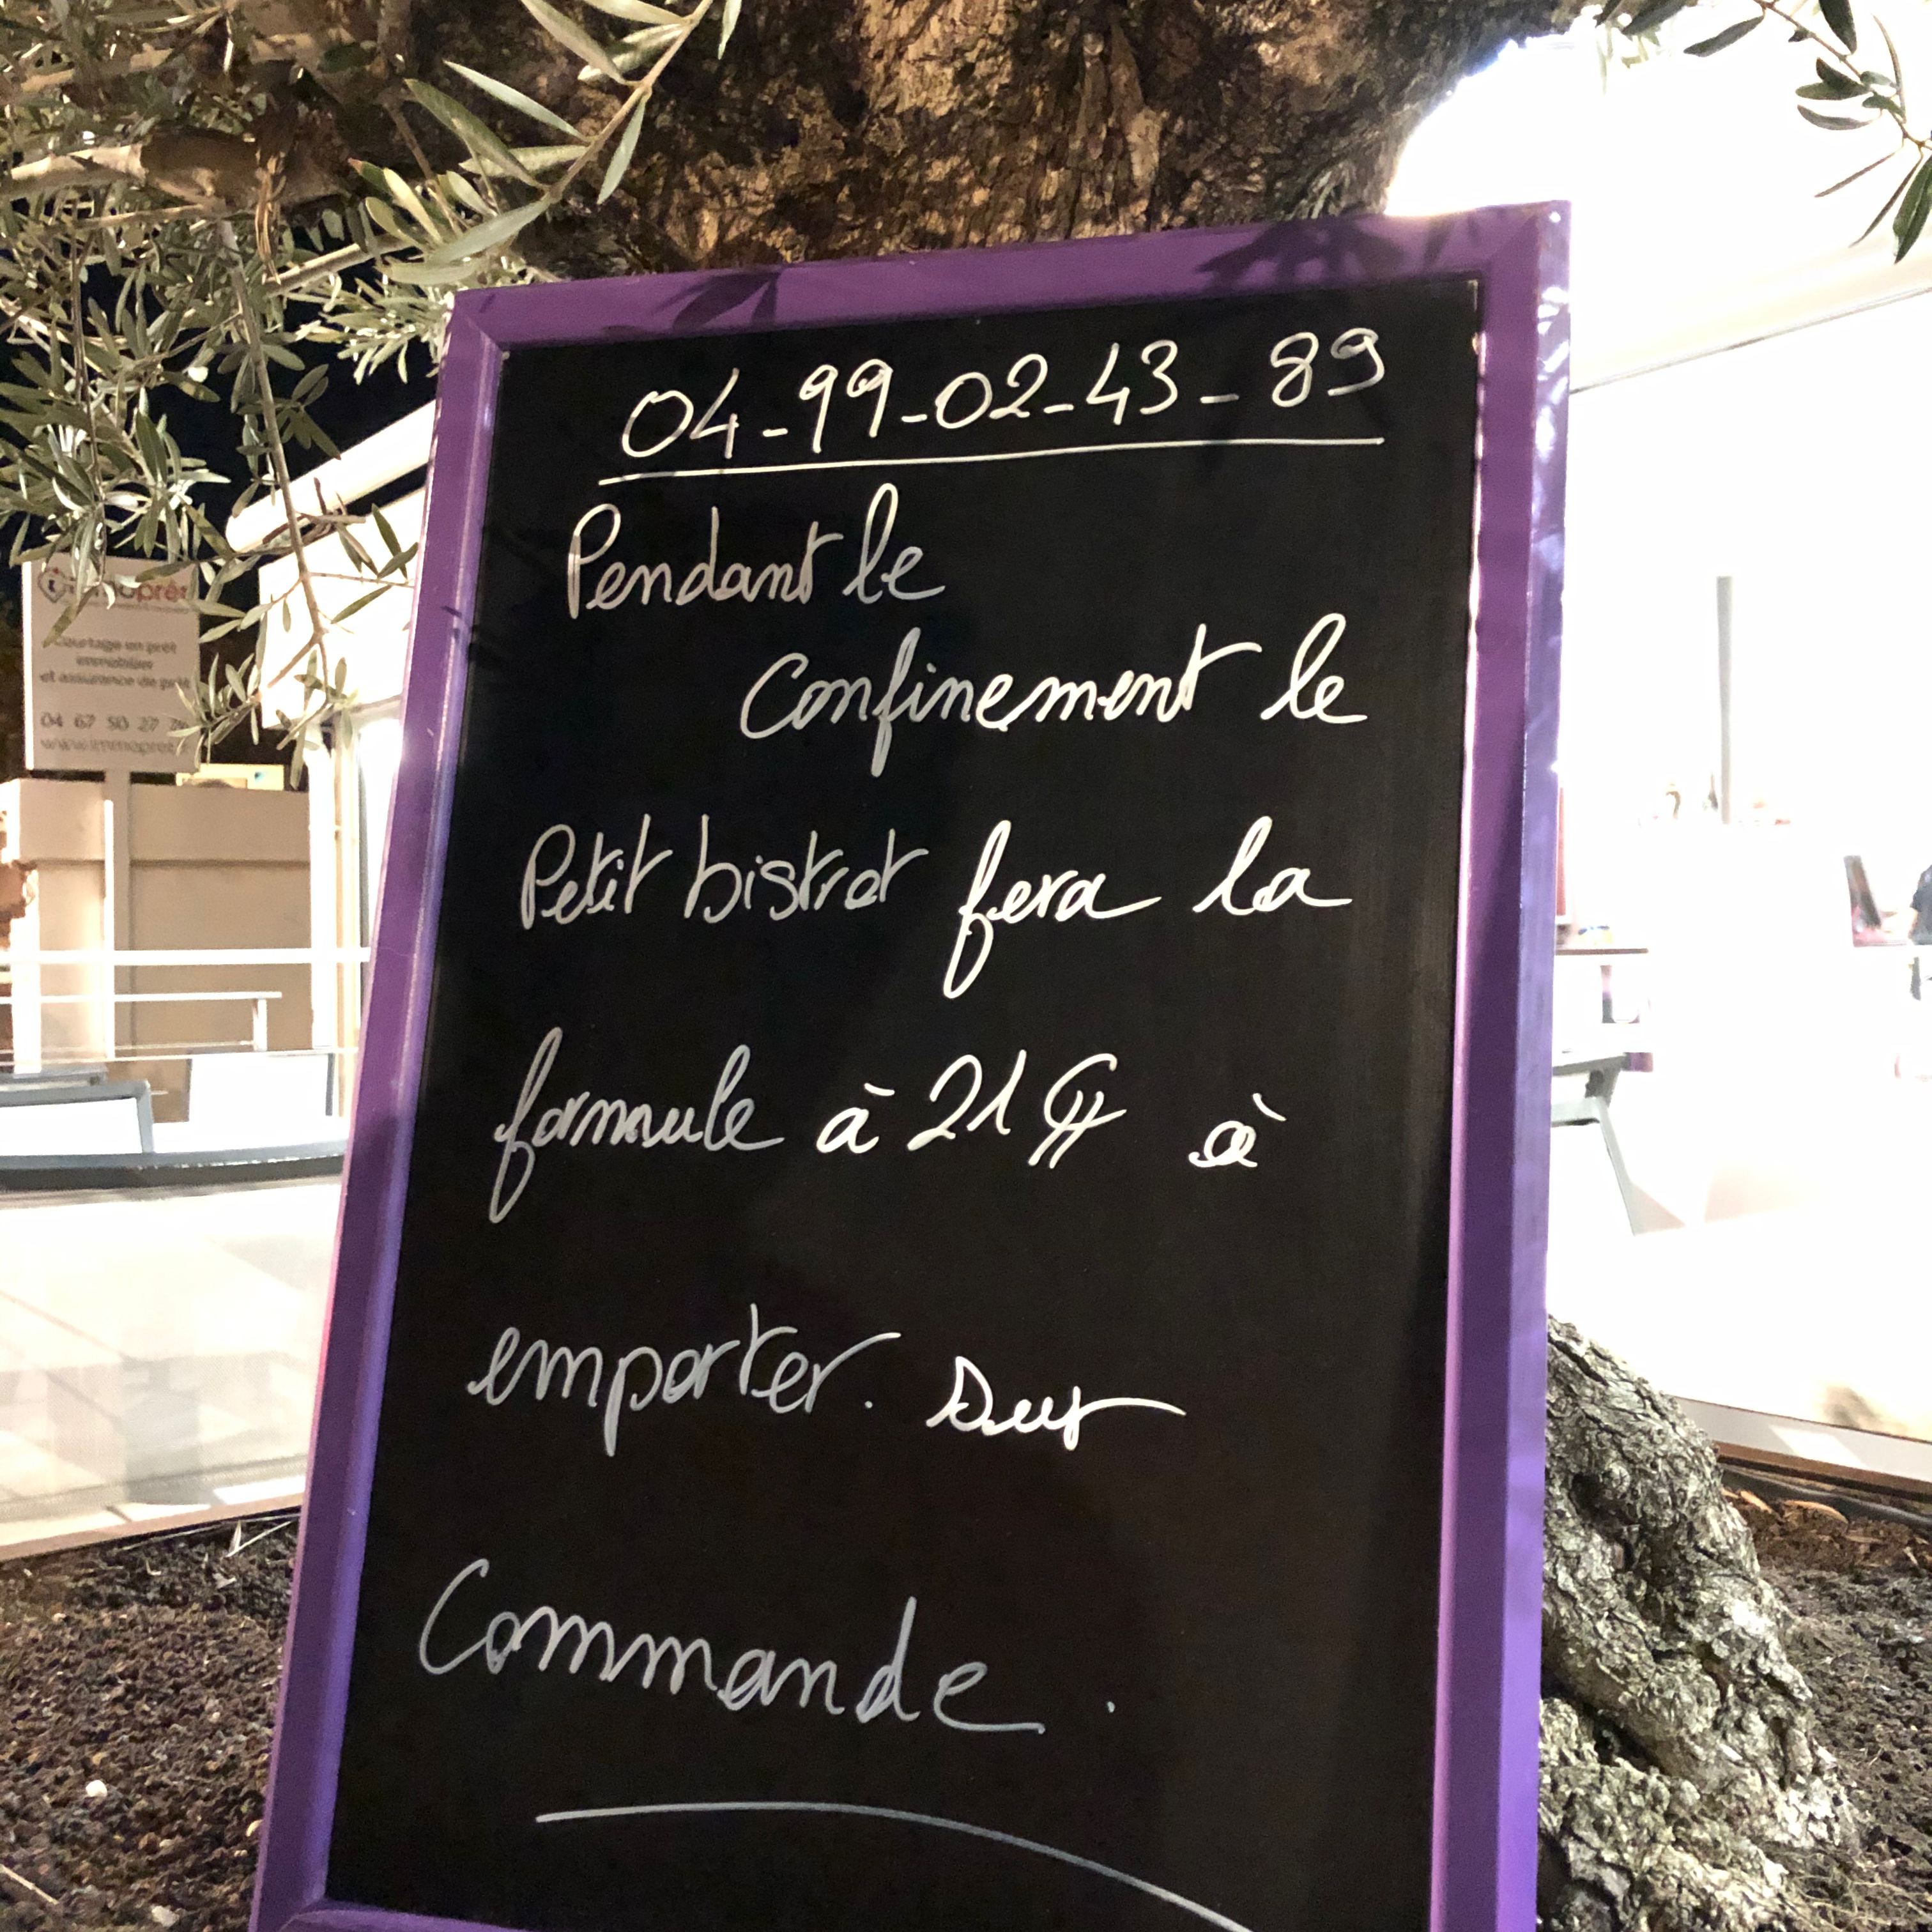 04-99-02-43-89
Pendant le
Confinement le
Petit bistrot fera la
formule à 21€ à
emporter. Sur
Commande.
Courtage en prêt
immobilier
et assurance de prêt
04 67 50 27